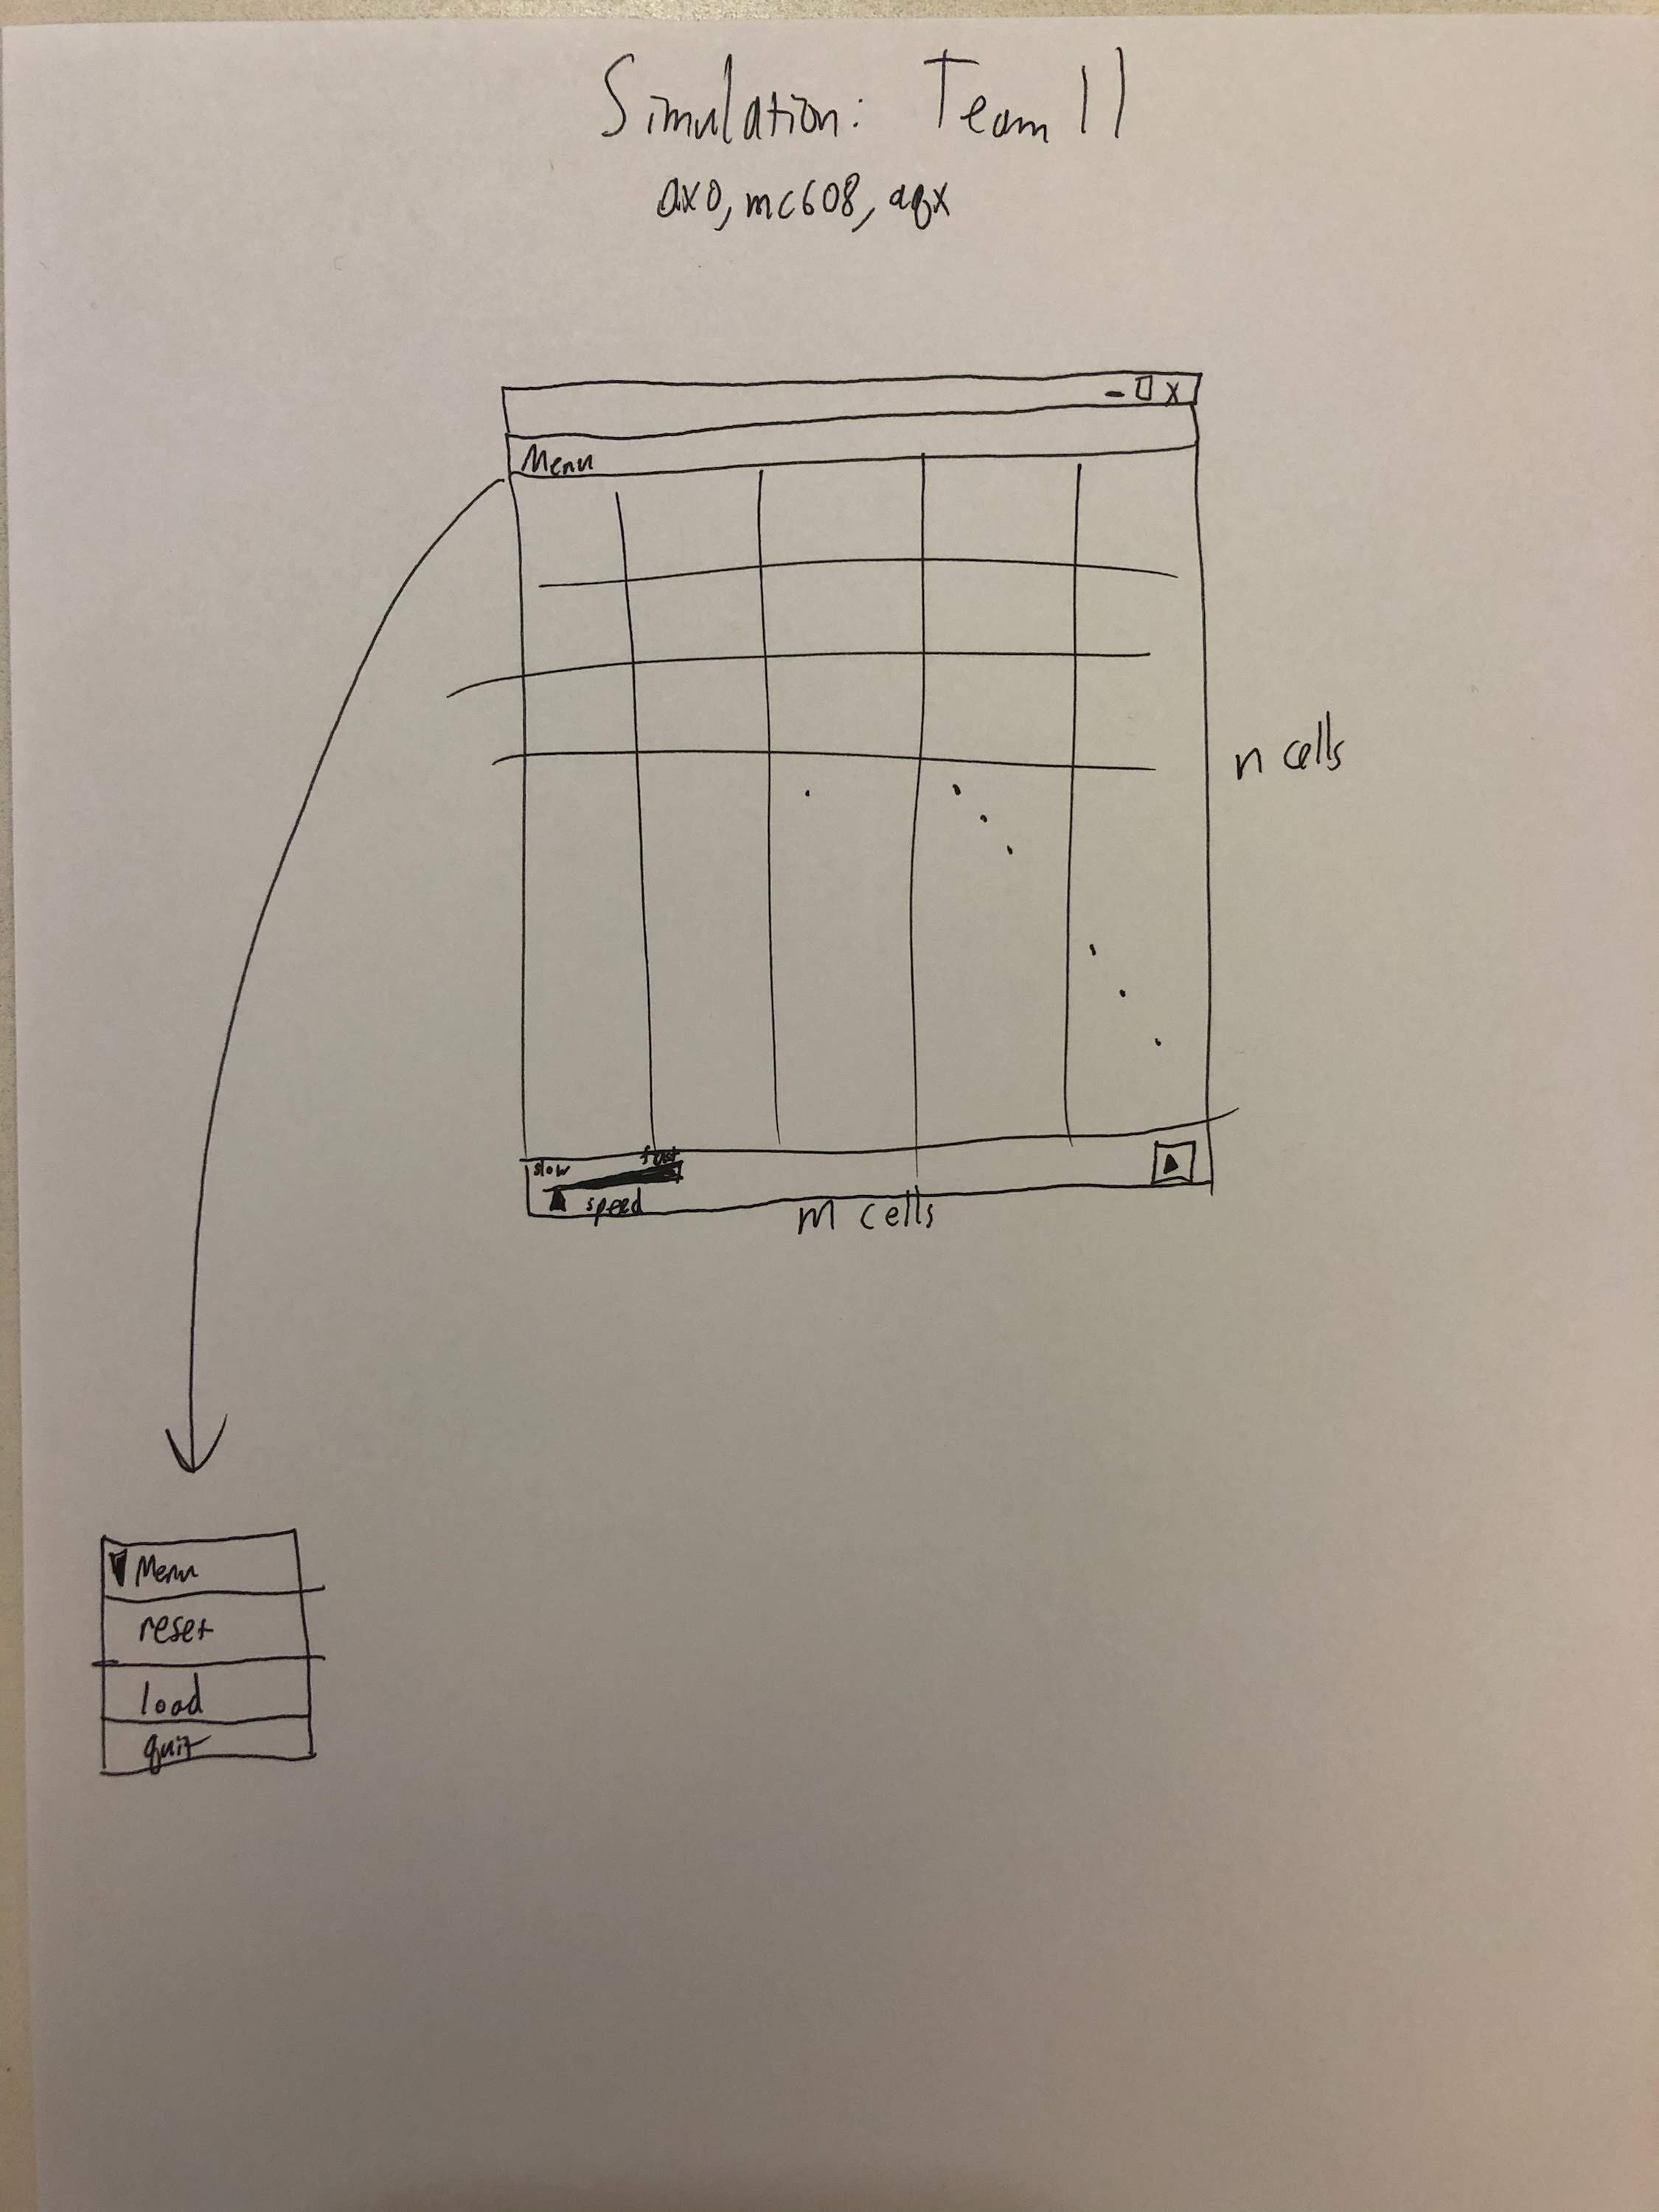 Simulation: Team 11
axo, mc608, aqx
Menu
n cells
slow fast
speed
m cells
Menu
reset
load
quit